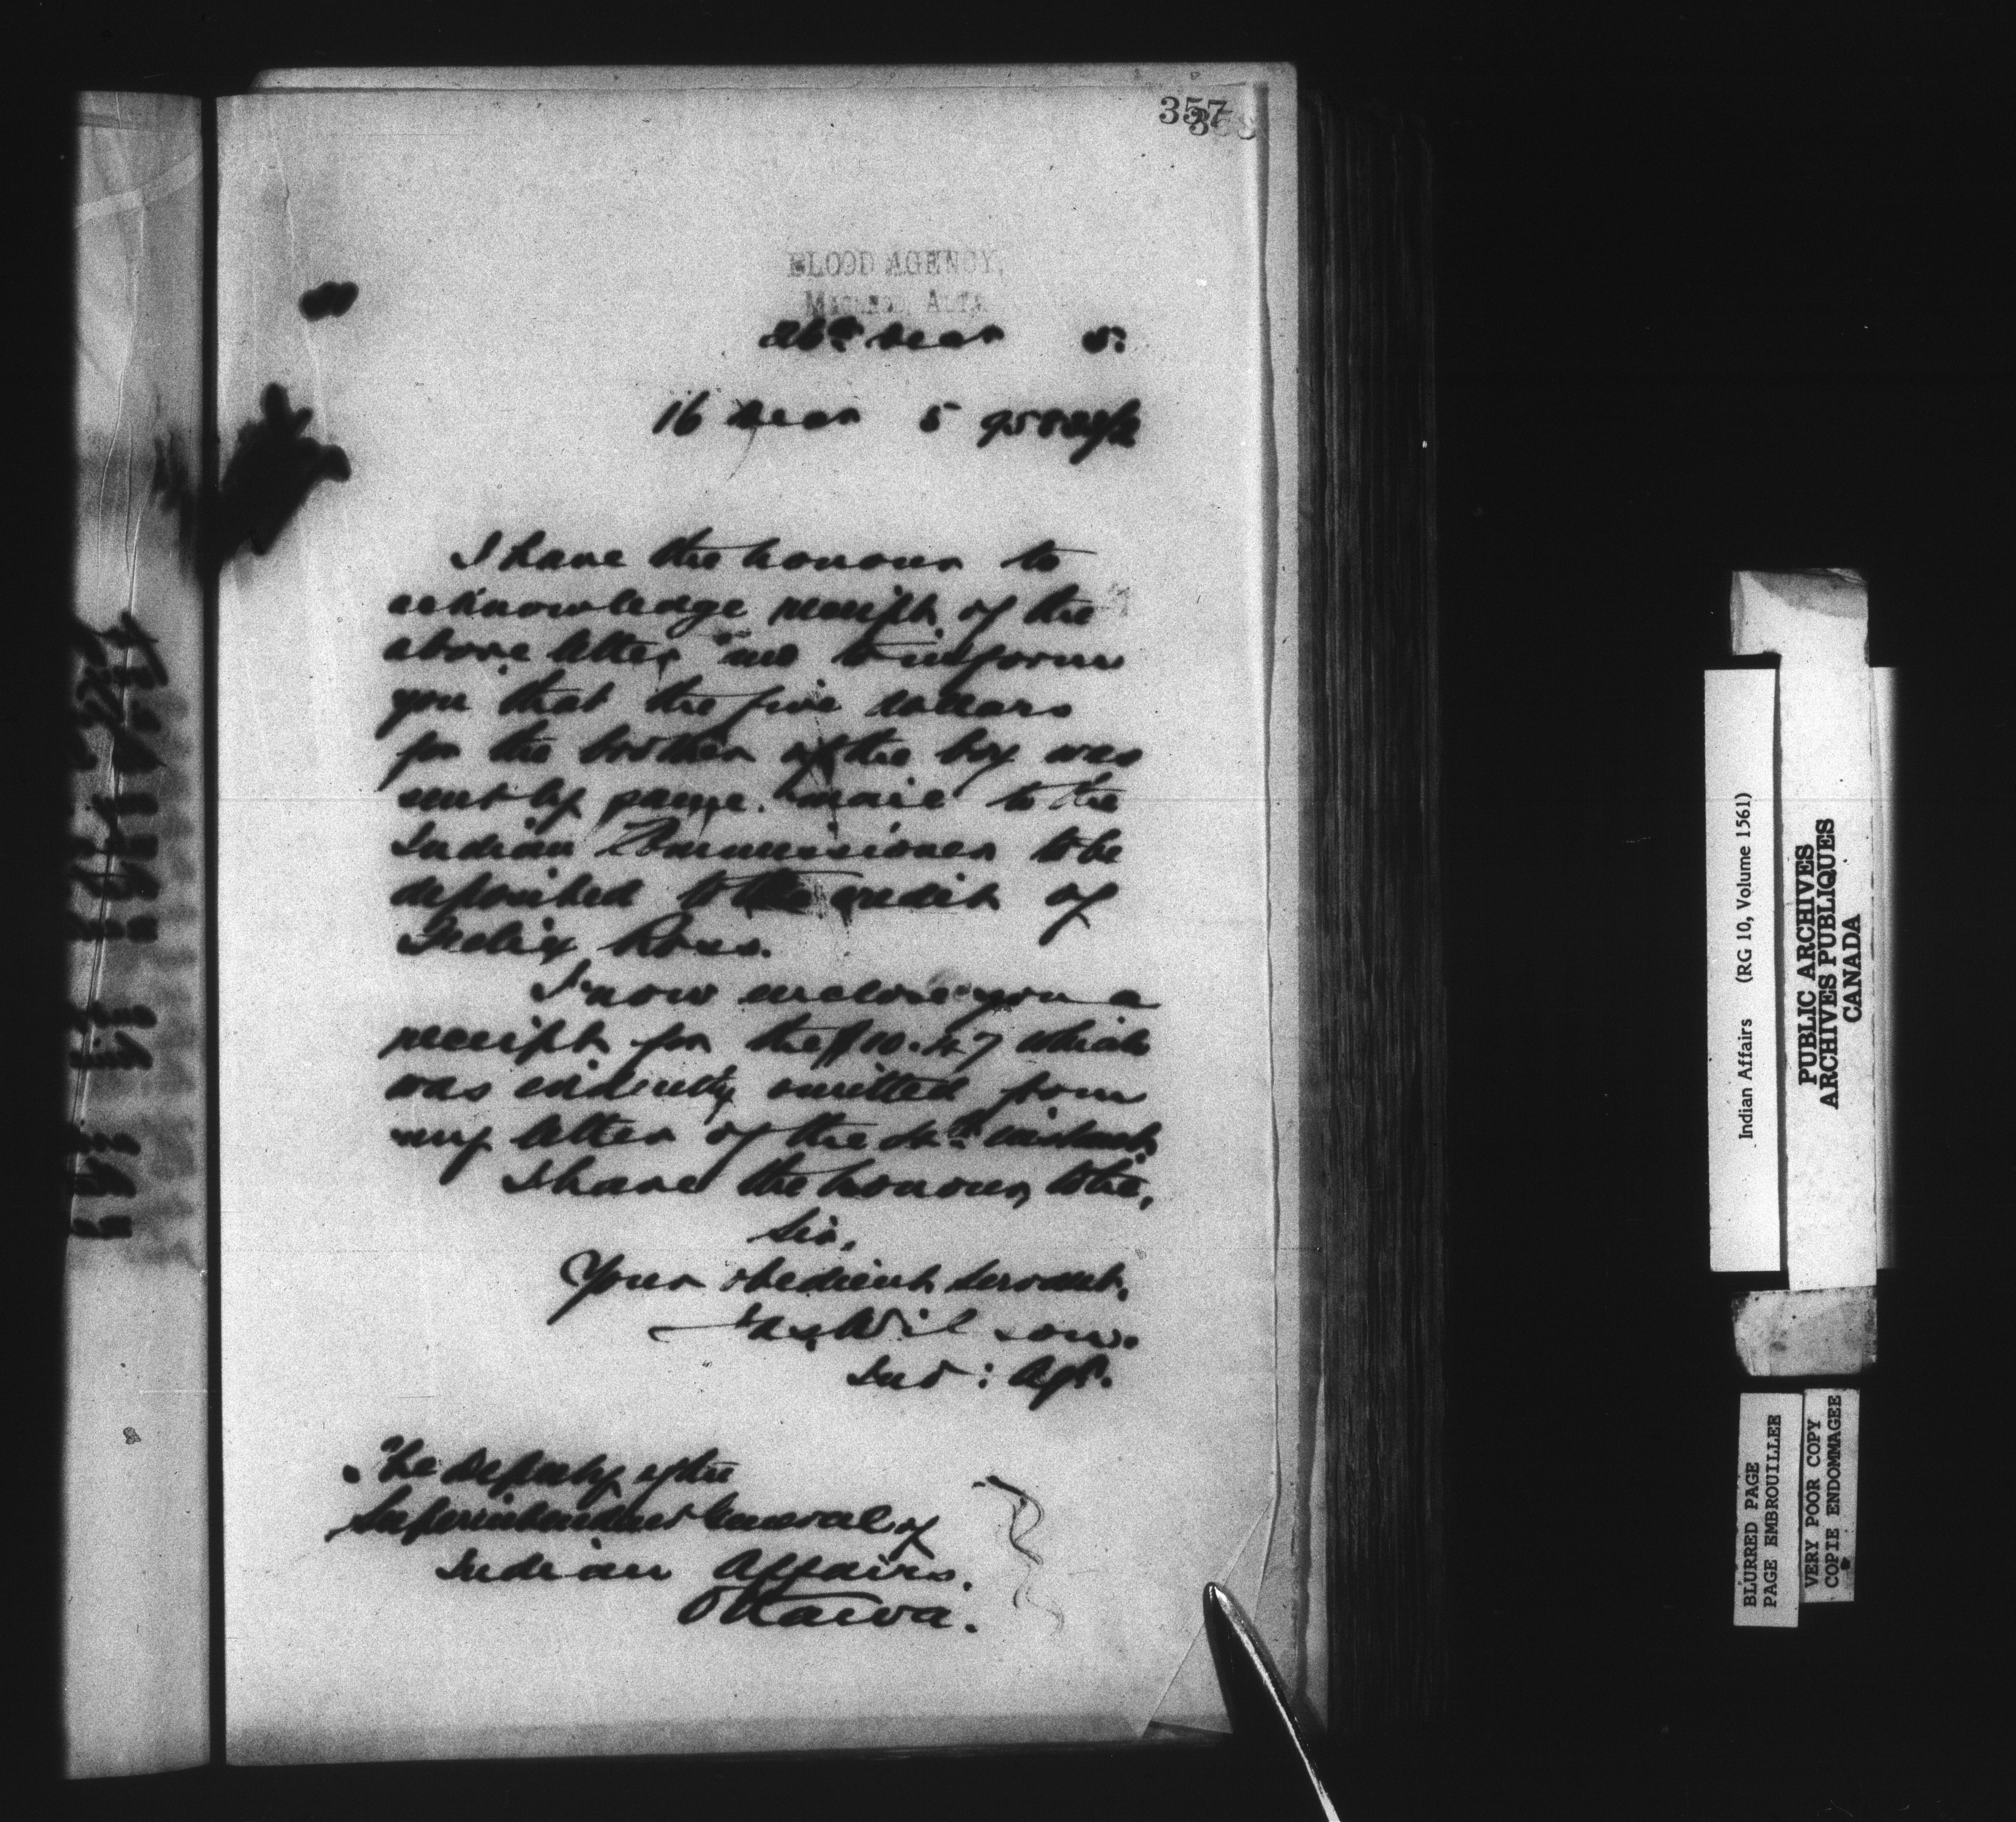 357
BLOOD AGENCY,
Macleod, Alta.
26th Decr 5.
16 Decr 5
I have the honour to
acknowledge receipt of the
above letter and to inform
you that the five dollars
for the brother of the boy was
sent by same mail to the
Indian Commissioner to be
deposited to the credit of
Felix Ross.
I now enclose you a
receipt for the $10.47 which
was evidently omitted from
my letter of the 4th instant,
I have the honour, to be,
Sir,
Your obedient servant,
Jas. Wilson.
Ind: Agt.
The Deputy of the
Superintendent General of
Indian Affairs.
Ottawa.
Indian Affairs (RG 10, Volume 1561)
PUBLIC ARCHIVES
ARCHIVES PUBLIQUES
CANADA
BLURRED PAGE
PAGE EMBROUILLEE
VERY POOR COPY
COPIE ENDOMMAGEE